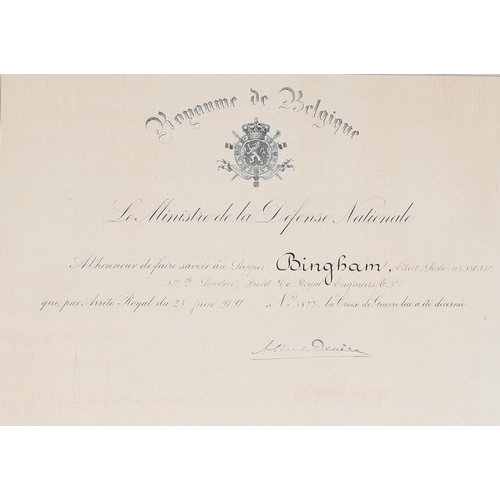 Royaume de Belgique
Le Ministre de la Défense Nationale
A l'honneur de faire savoir au Sapper Bingham, Albert Leslie
(London) Field Co Royal Engineers, T.F.
que, par Arrêté Royal du 23 juin 1919 N° la Croix de Guerre lui a été décernée.
Albert Devèze